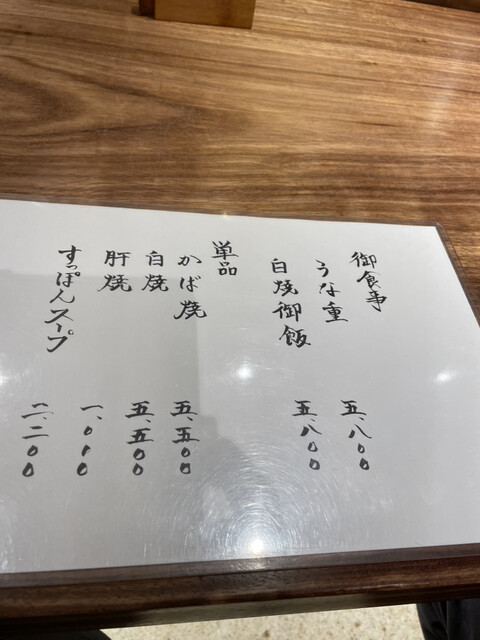 御食事
うな重 五、八〇〇
白焼御飯 五、八〇〇
単品
かば焼 五、五〇〇
白焼 五、五〇〇
肝焼 一、〇一〇
すっぽんスープ 二、二〇〇